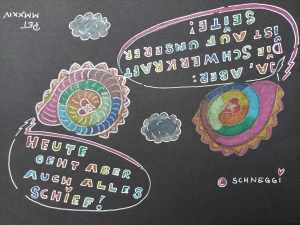 HEUTE
GEHT ABER
AUCH ALLES
SCHIEF!
JA, ABER:
DIE SCHWERKRAFT
IST AUF UNSERER
SEITE!
© SCHNEGGI
PET
MMXXIV